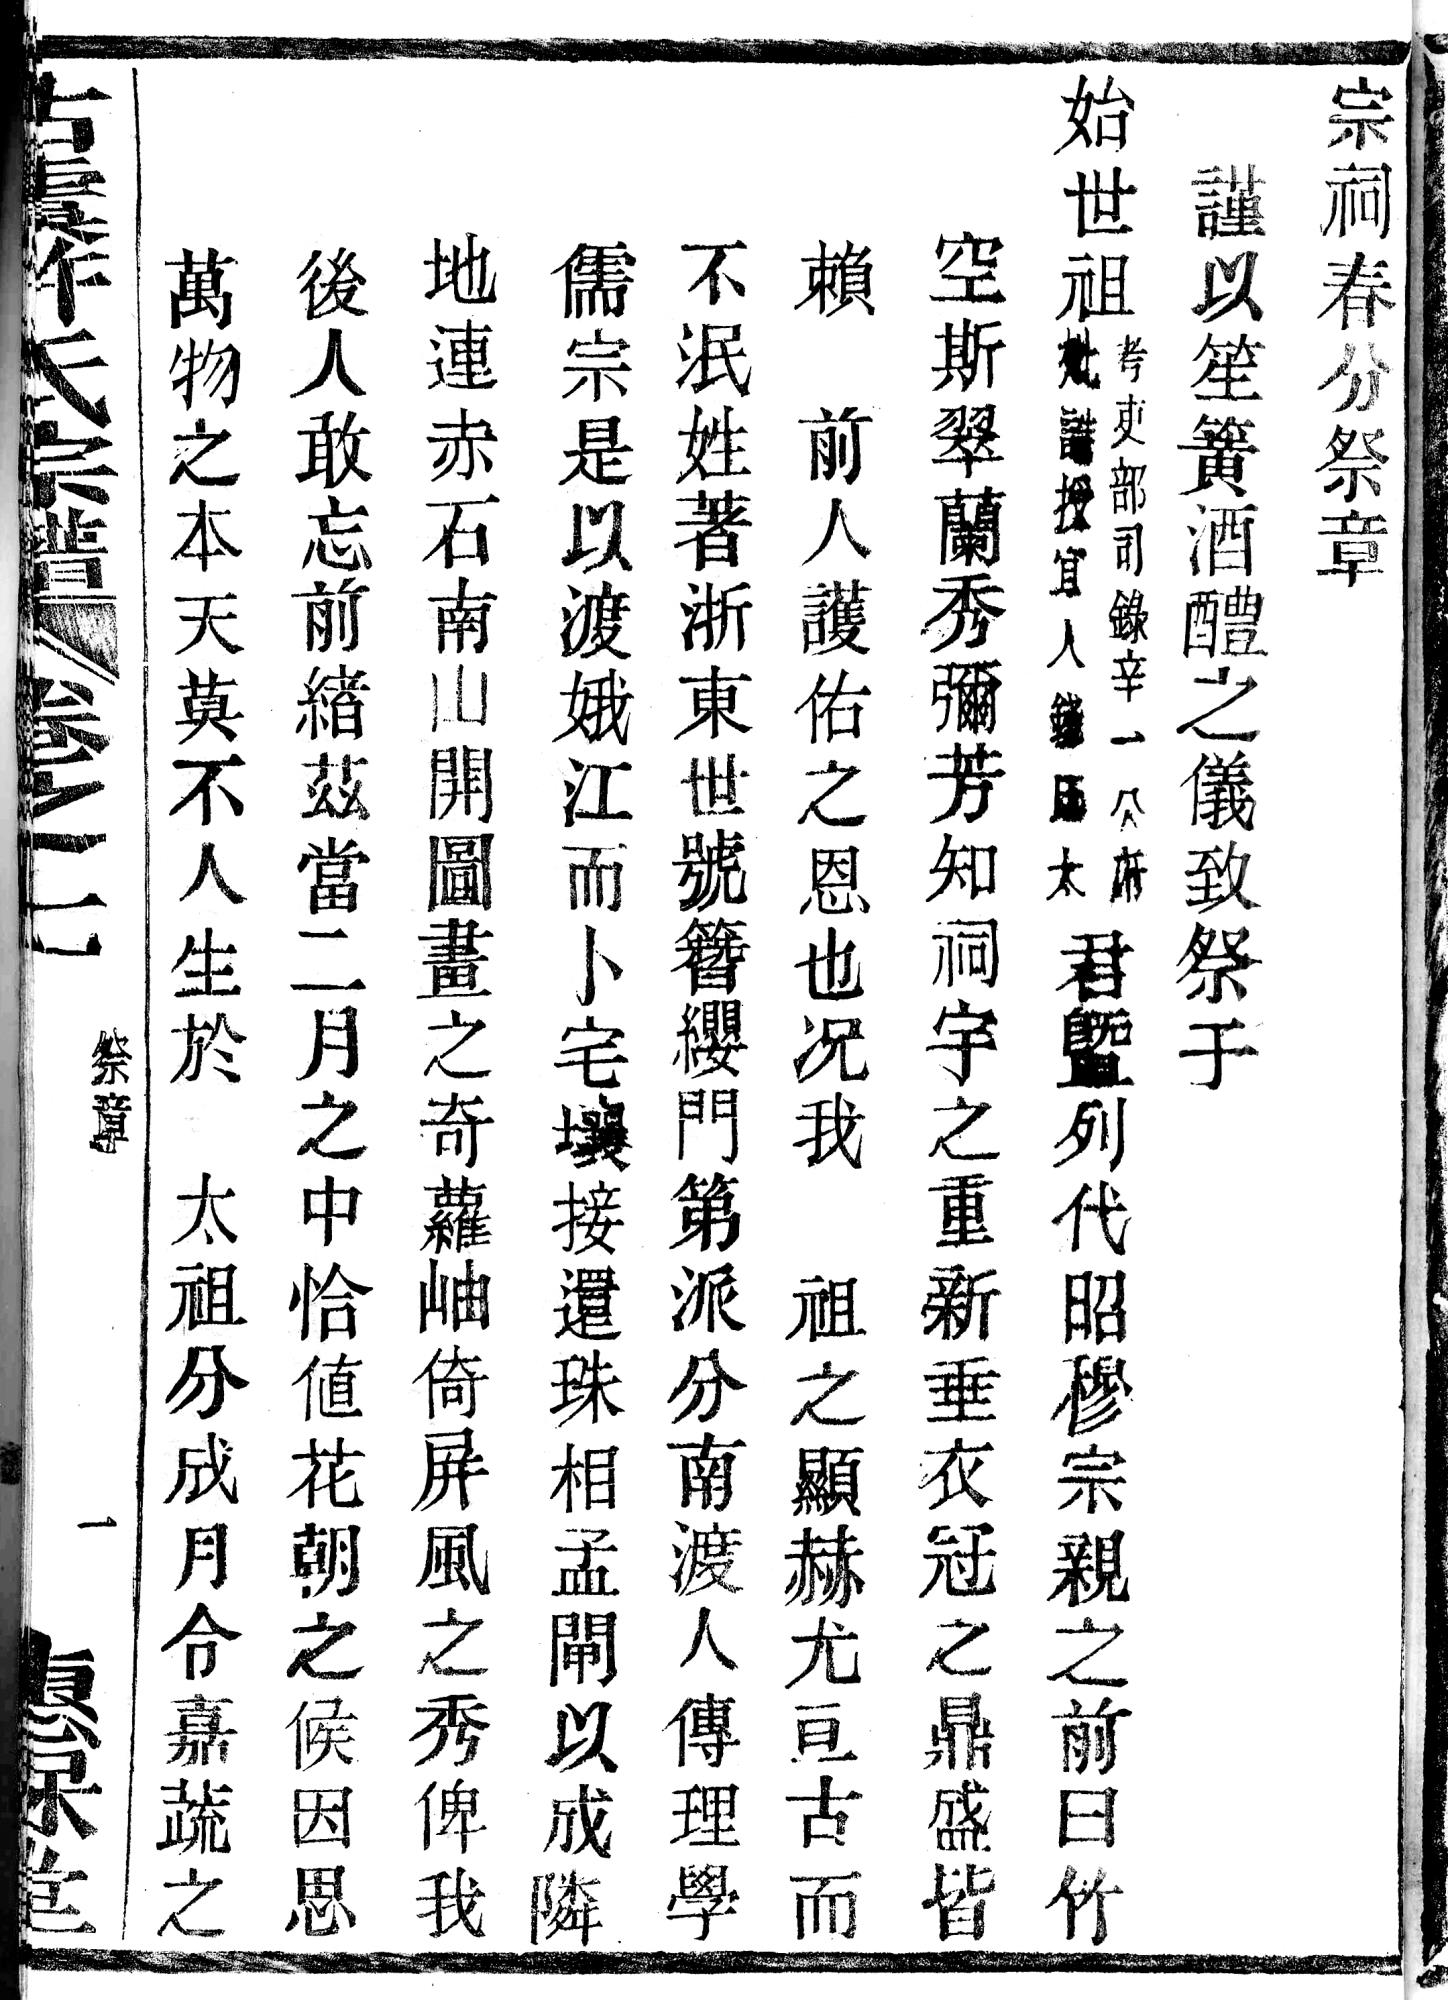 宗祠春分祭章
謹以笙簧酒醴之儀致祭于
始世祖考吏部司錄辛一公府
妣誥授宜人錢氏太君曁列代昭穆宗親之前曰竹
空斯翠蘭秀彌芳知祠宇之重新垂衣冠之鼎盛皆
賴 前人護佑之恩也况我 祖之顯赫尤亘古而
不泯姓著浙東世號簪纓門第派分南渡人傳理學
儒宗是以渡娥江而卜宅壤接還珠相孟閘以成隣
地連赤石南山開圖畫之奇蘿岫倚屏風之秀俾我
後人敢忘前緖茲當二月之中恰値花朝之候因思
萬物之本天莫不人生於 太祖分成月令嘉蔬之
氏宗譜 卷之二
祭章
一